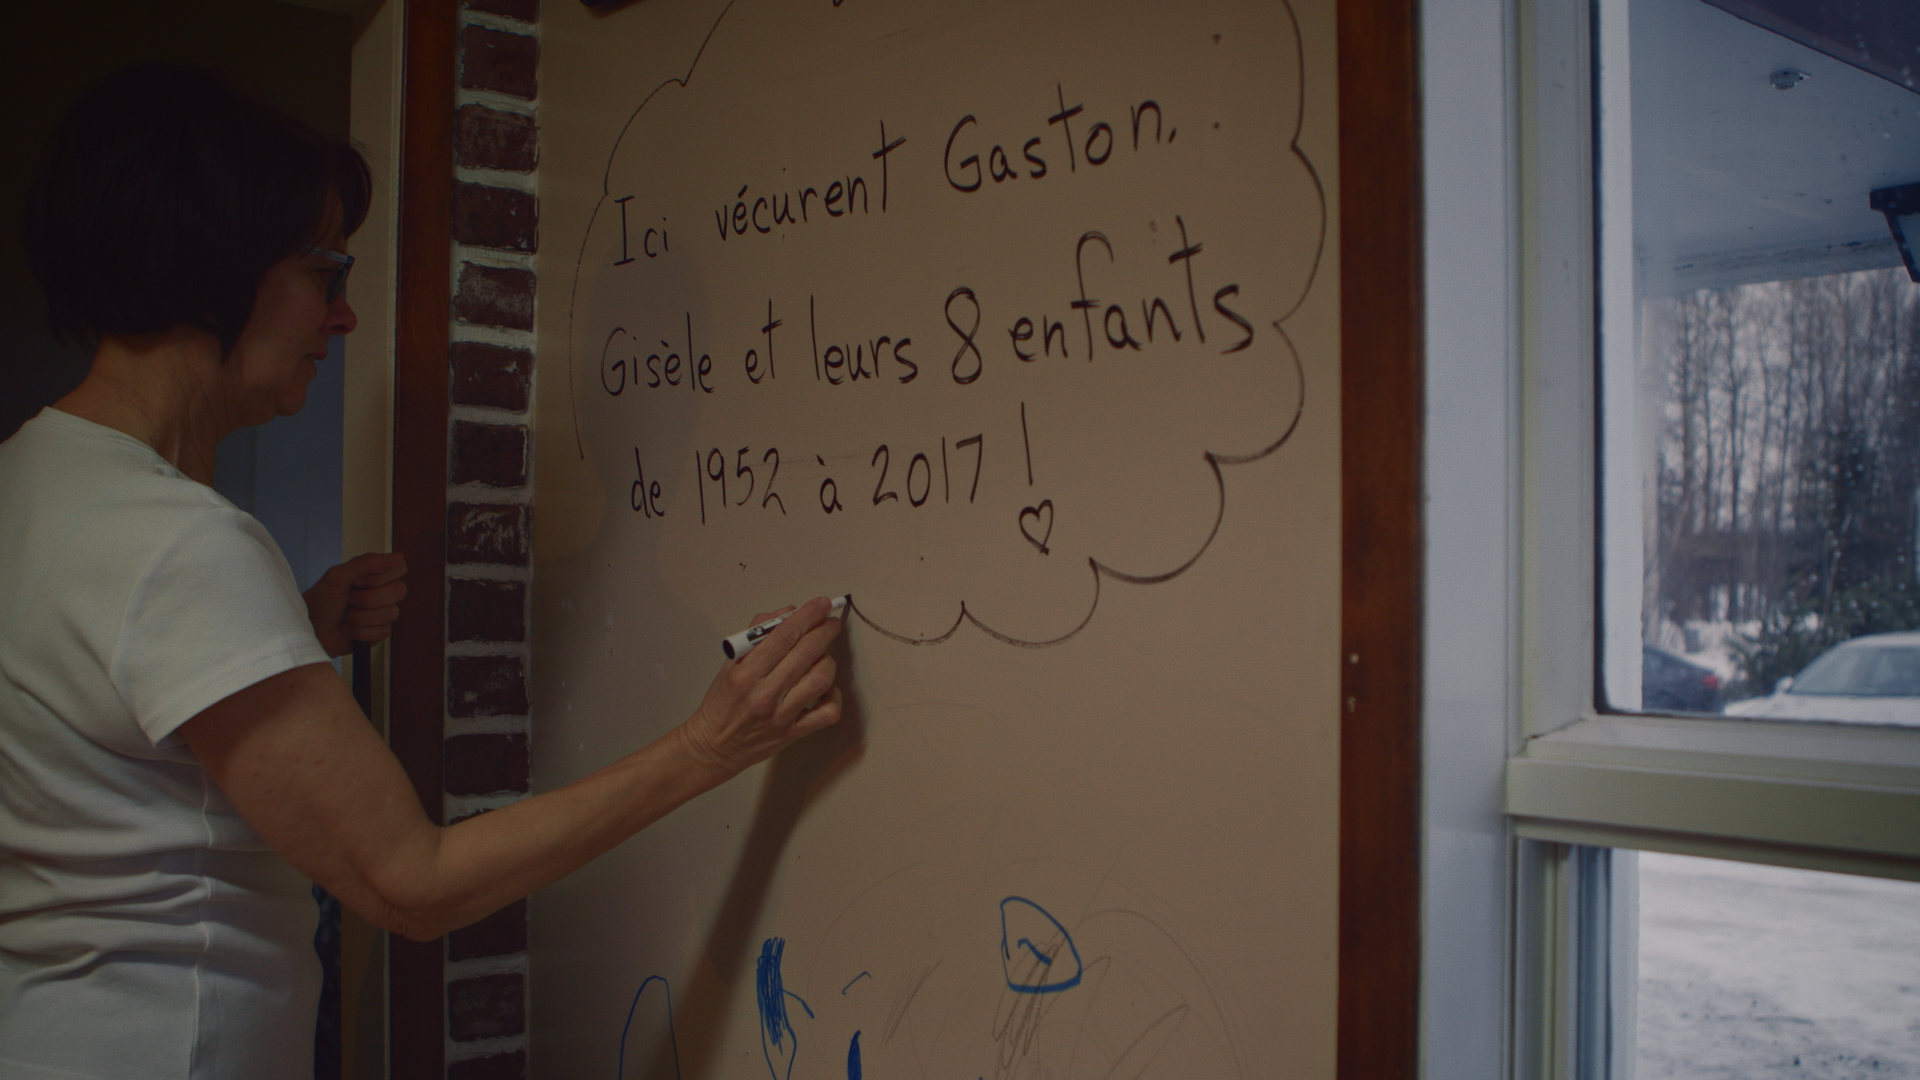 Ici vécurent Gaston,
Gisèle et leurs 8 enfants
de 1952 à 2017 !